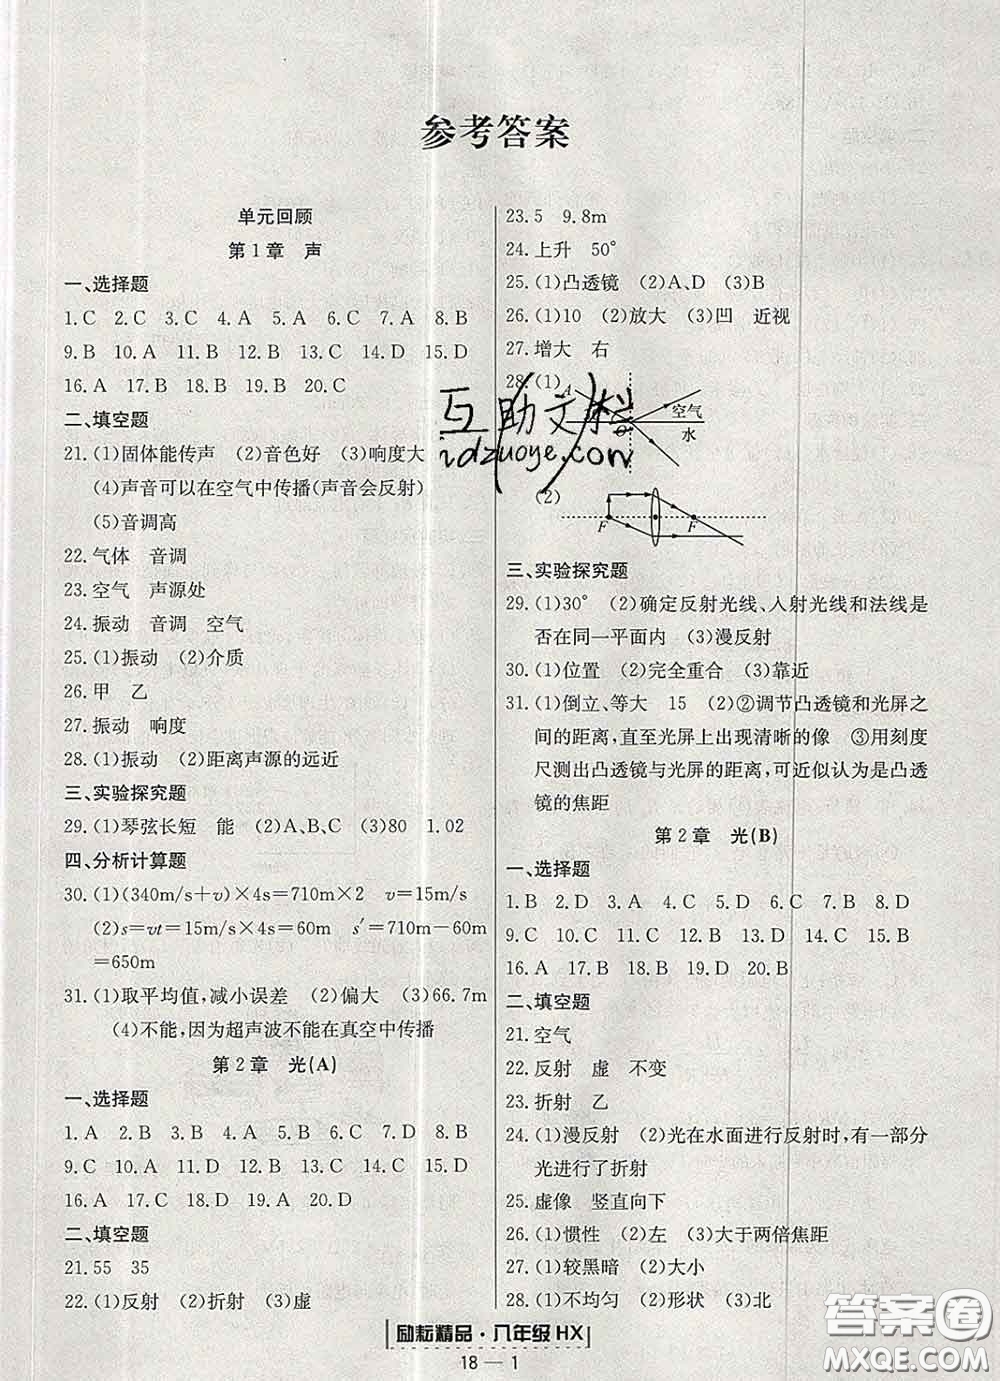 参考答案
单元回顾
第1章 声
一、选择题
1.C 2.C 3.C 4.A 5.A 6.A 7.A 8.B
9.B 10.A 11.B 12.B 13.C 14.D 15.D
16.A 17.B 18.B 19.B 20.C
二、填空题
21.(1)固体能传声 (2)音色好 (3)响度大
(4)声音可以在空气中传播(声音会反射)
(5)音调高
22.气体 音调
23.空气 声源处
24.振动 音调 空气
25.(1)振动 (2)介质
26.甲 乙
27.振动 响度
28.(1)振动 (2)距离声源的远近
三、实验探究题
29.(1)琴弦长短 能 (2)A、B、C (3)80 1.02
四、分析计算题
30.(1)(340m/s+v)×4s=710m×2 v=15m/s
(2)s=vt=15m/s×4s=60m s′=710m-60m
=650m
31.(1)取平均值,减小误差 (2)偏大 (3)66.7m
(4)不能,因为超声波不能在真空中传播
第2章 光(A)
一、选择题
1.A 2.B 3.B 4.A 5.B 6.B 7.D 8.B
9.C 10.D 11.A 12.C 13.B 14.D 15.D
16.A 17.C 18.C 19.A 20.D
二、填空题
21.55 35
22.(1)反射 (2)折射 (3)虚
23.5 9.8m
24.上升 50°
25.(1)凸透镜 (2)A、D (3)B
26.(1)10 (2)放大 (3)凹 近视
27.增大 右
28.(1)
A
空气
水
互助文档
idzuoye.com
(2)
F F
三、实验探究题
29.(1)30° (2)确定反射光线、入射光线和法线是
否在同一平面内 (3)漫反射
30.(1)位置 (2)完全重合 (3)靠近
31.(1)倒立、等大 15 (2)②调节凸透镜和光屏之
间的距离,直至光屏上出现清晰的像 ③用刻度
尺测出凸透镜与光屏的距离,可近似认为是凸透
镜的焦距
第2章 光(B)
一、选择题
1.B 2.D 3.A 4.B 5.A 6.B 7.D 8.D
9.C 10.C 11.D 12.D 13.D 14.C 15.B
16.A 17.B 18.B 19.D 20.B
二、填空题
21.空气
22.反射 虚 不变
23.折射 乙
24.(1)漫反射 (2)光在水面进行反射时,有一部分
光进行了折射
25.虚像 竖直向下
26.(1)惯性 (2)左 (3)大于两倍焦距
27.(1)较黑暗 (2)大小
28.(1)不均匀 (2)形状 (3)北
励耘精品·八年级HX
18—1
答案圈
MXQE.COM